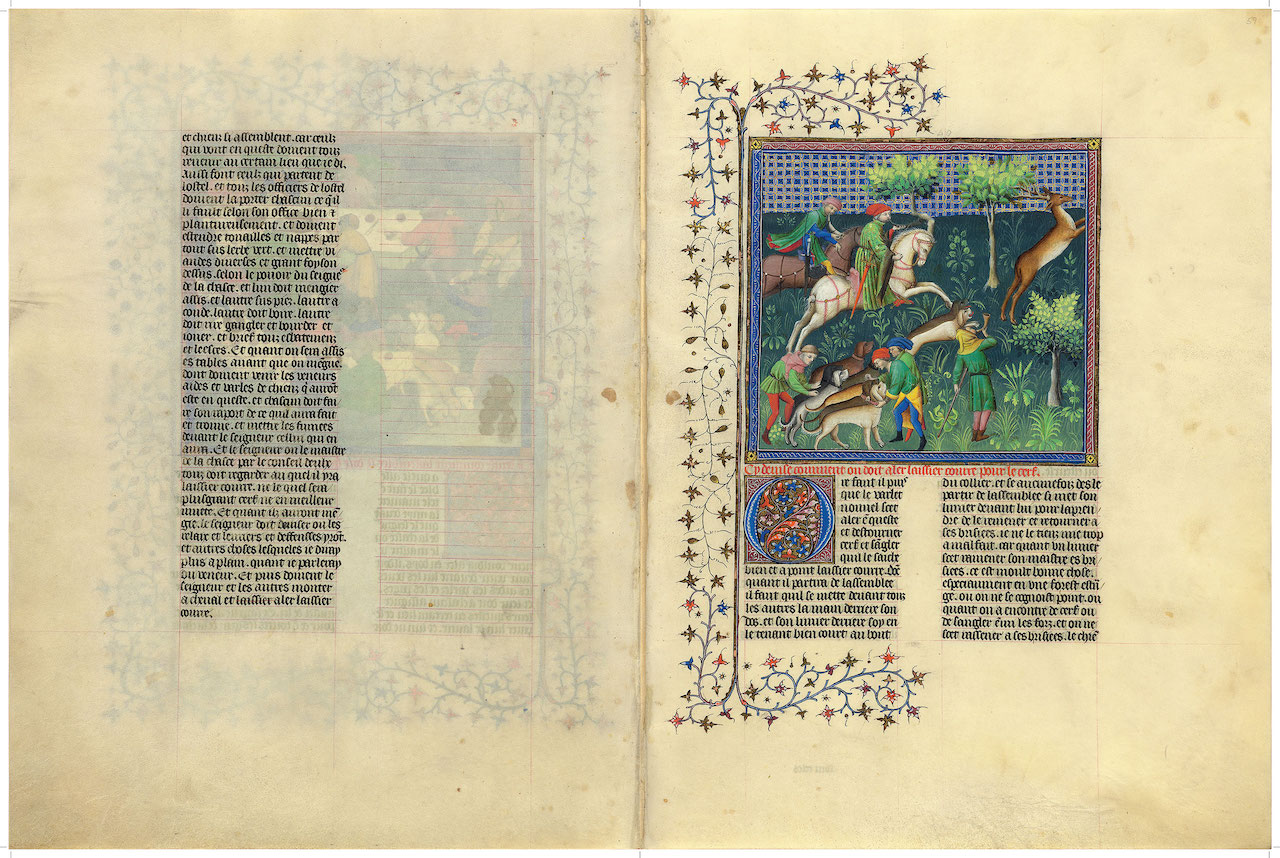 et chiens si assemblent. car ceulz
qui vont en queste doivent touz
revenir au certain lieu que ie di.
Aussi font ceulz qui partent de
lostel. et touz les officiers de lostel
doivent la porter chascun ce qil
li faut selon son office bien et
plantureusement. et doivent
estendre touailles et nappes par
tout sus lerbe vert. et mettre vi
andes diverses et grant foyson
dessus. selon le povoir du seigneᵉ
de la chasce. et lun doit mengier
assis. et lautre sus piez. lautre a
coude. lautre doit boire. lautre
doit rire gangler et bourder et
iouer. et brief touz esbatemenz
et leesces. Et quant on sera assis
es tables avant que on mēgue.
dont doivent venir les veneurs
aides et varles de chiens q̄ auront
este en queste. et chascun doit fai
re son raport de ce quil aura fait
et trouve. et mettre les fumees
devant le seigneur cellui qui en
aura. Et le seigneur ou le maistre
de la chasce par le conseil deulx
touz doit regarder au quel il yra
laissier courre. ne le quel sera
plusgrant cerf ne en meilleur
muete. Et quant ilz auront mē
gie. le seigneur doit deviser ou les
relaix et levriers et deffenses yrōt.
et autres choses lesqueles ie diray
plus a plain. quant ie parleray
du veneur. Et puis doivent le
seigneur et les autres monter
a cheval et laissier aler laissier
courre.
Cy devise comment on doit aler laissier courre pour le cerf.
Ore faut il puis
que le varlet
nouvel scet
aler ē queste
et destourner
cerf et sāgler
quil le saiche
bien et a point laissier courre. Dōc
quant il partira de lassemblee
il faut quil se mette devant touz
les autres la main derriere son
dos. et son limier derriere soy en
le tenant bien court au bout
du collier. et se aucunefois des le
partir de lassemblee si met son
limier devant lui pour lapren
dre de le remener et retourner a
ses brisiees. ie ne le tieng mie trop
a mal fait. car quant un limier
scet ramener son maistre es bri
siees. et est moult bonne chose.
especiaument en une forest estrā
ge. ou on ne se cognoist point. ou
quant on a encontre de cerf ou
de sangler ēmi les fors. et on ne
scet assener a ses brisiees. le chiē